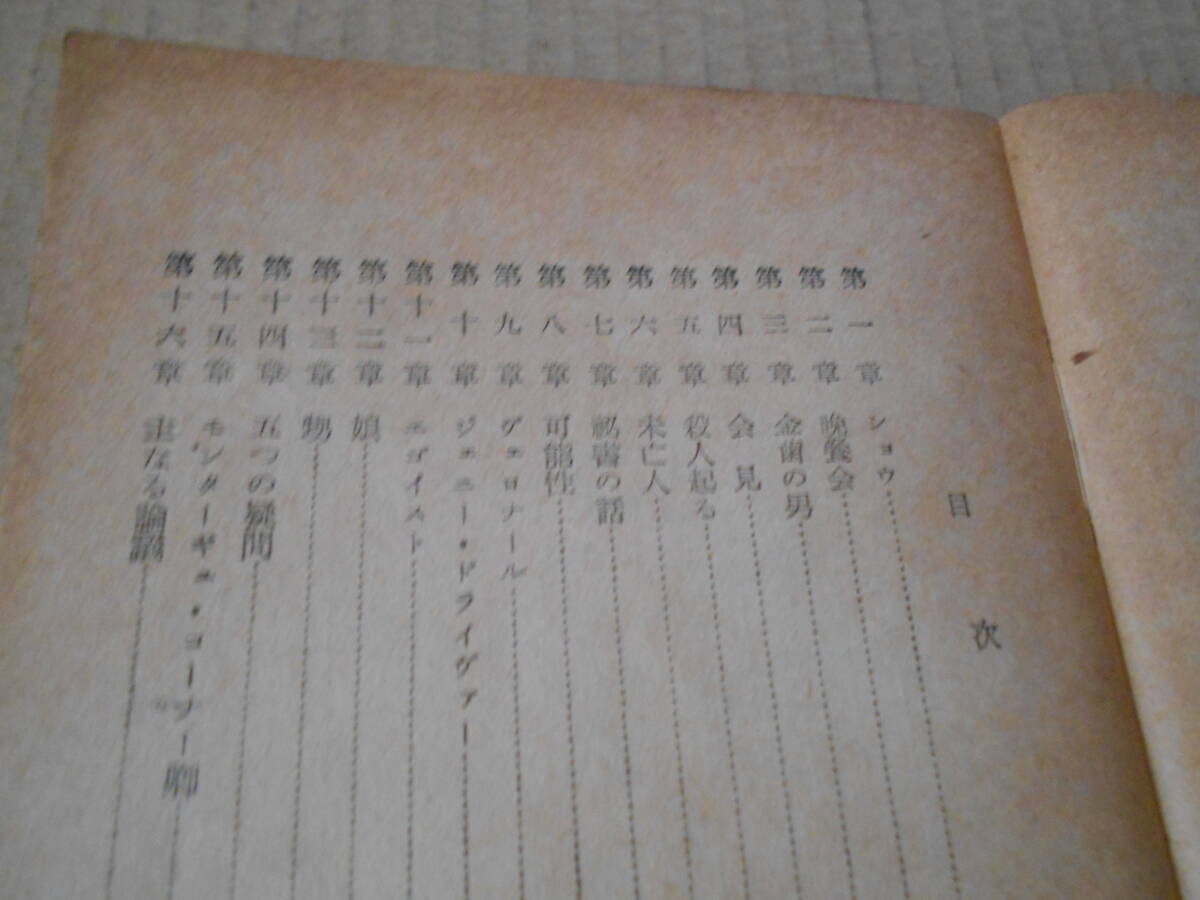 目次
第一章 ショウ
第二章 晩餐会
第三章 金歯の男
第四章 会見
第五章 殺人起る
第六章 未亡人
第七章 祕書の話
第八章 可能性
第九章 ヴェロナール
第十章 ジェニー・ドライヴァー
第十一章 エゴイスト
第十二章 娘
第十三章 甥
第十四章 五つの疑問
第十五章 モンターギュ・コーナー卿
第十六章 主なる論議